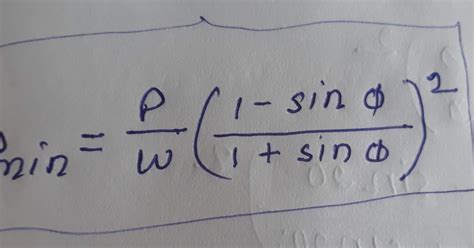 min = P/w (1 - sin φ / 1 + sin φ)²